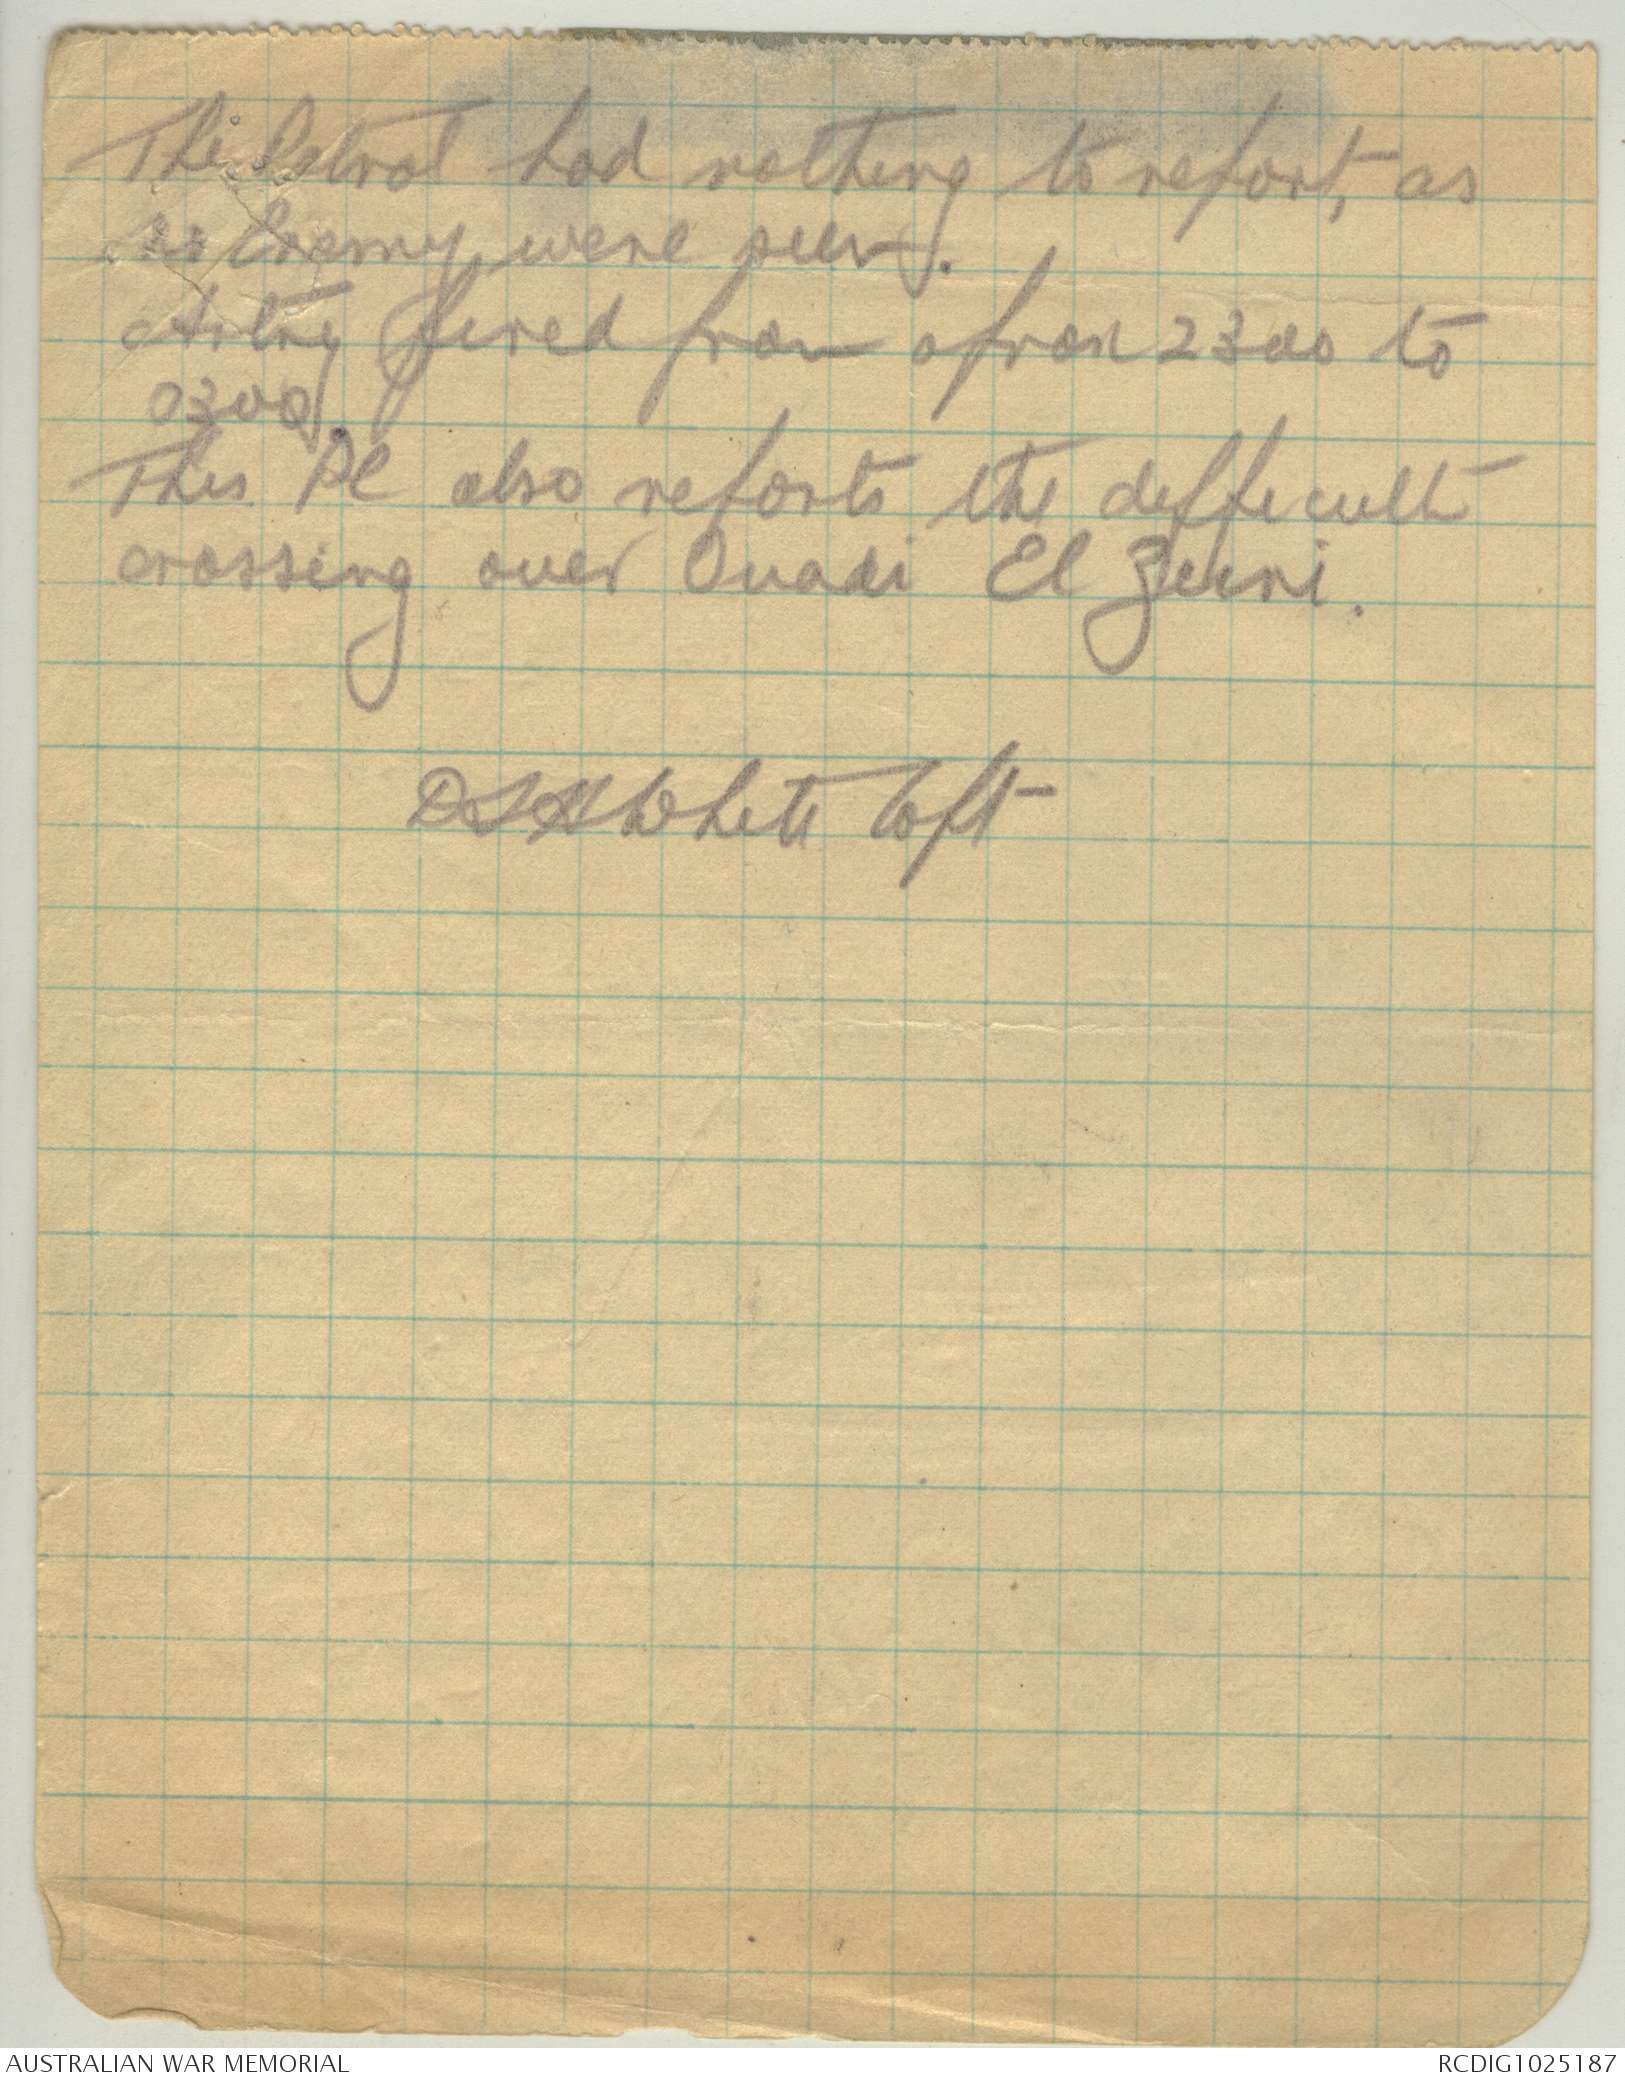 The Patrol had nothing to report, as
no Enemy were seen.
Artny fired from aprox 2300 to
0300.
This Pl also reports the difficult
crossing over Ouadi El Zeini.
White Capt
AUSTRALIAN WAR MEMORIAL
RCDIG1025187